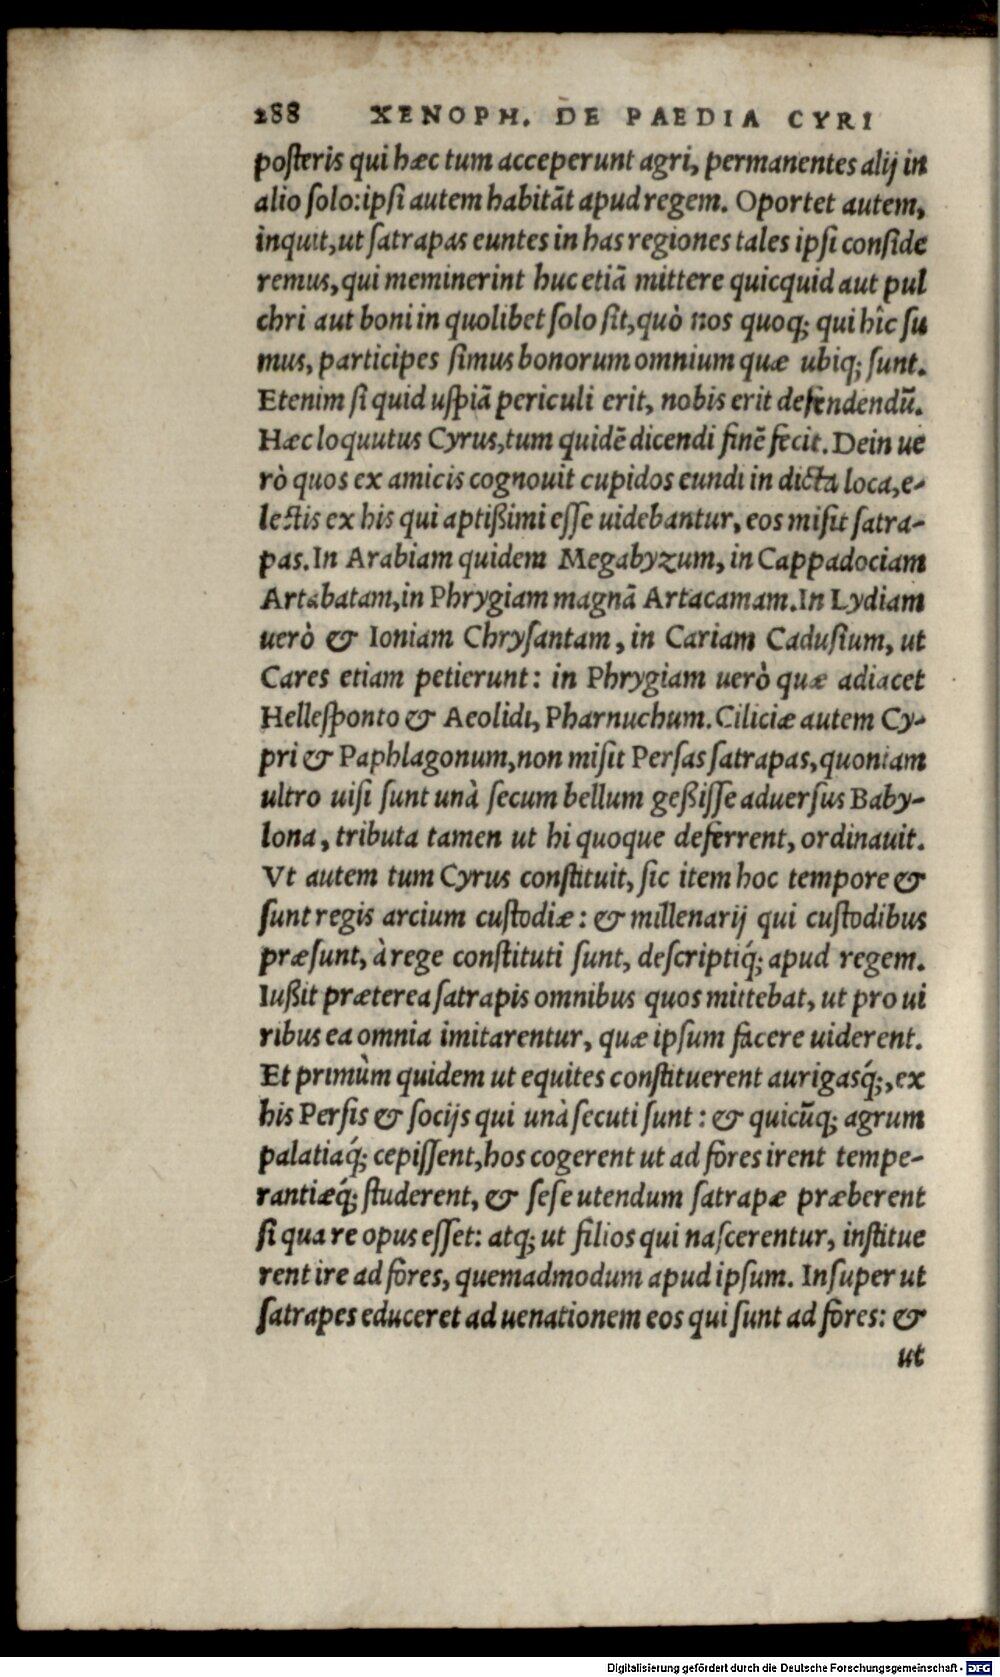 288 XENOPH. DE PAEDIA CYRI
posteris qui hæc tum acceperunt agri, permanentes alij in
alio solo: ipsi autem habitāt apud regem. Oportet autem,
inquit, ut satrapas euntes in has regiones tales ipsi conside
remus, qui meminerint huc etiā mittere quicquid aut pul
chri aut boni in quolibet solo sit, quò nos quoq; qui hîc su
mus, participes simus bonorum omnium quæ ubiq; sunt.
Etenim si quid uspiā periculi erit, nobis erit defendendū.
Hæc loquutus Cyrus, tum quidē dicendi finē fecit. Dein ue
rò quos ex amicis cognouit cupidos eundi in dicta loca, e-
lectis ex his qui aptißimi esse uidebantur, eos misit satra-
pas. In Arabiam quidem Megabyzum, in Cappadociam
Artabatam, in Phrygiam magnā Artacamam. In Lydiam
uerò & Ioniam Chrysantam, in Cariam Cadusium, ut
Cares etiam petierunt: in Phrygiam uerò quæ adiacet
Hellesponto & Aeolidi, Pharnuchum. Ciliciæ autem Cy-
pri & Paphlagonum, non misit Persas satrapas, quoniam
ultro uisi sunt unà secum bellum geßisse aduersus Baby-
lona, tributa tamen ut hi quoque deferrent, ordinauit.
Vt autem tum Cyrus constituit, sic item hoc tempore &
sunt regis arcium custodiæ: & millenarij qui custodibus
præsunt, à rege constituti sunt, descriptiq́; apud regem.
Iußit præterea satrapis omnibus quos mittebat, ut pro ui
ribus ea omnia imitarentur, quæ ipsum facere uiderent.
Et primùm quidem ut equites constituerent aurigasq́;, ex
his Persis & socijs qui unà secuti sunt: & quicūq; agrum
palatiaq́; cepissent, hos cogerent ut ad fores irent tempe-
rantiæq́; studerent, & sese utendum satrapæ præberent
si qua re opus esset: atq; ut filios qui nascerentur, institue
rent ire ad fores, quemadmodum apud ipsum. Insuper ut
satrapes educeret ad uenationem eos qui sunt ad fores: &
ut
Digitalisierung gefördert durch die Deutsche Forschungsgemeinschaft - DFG